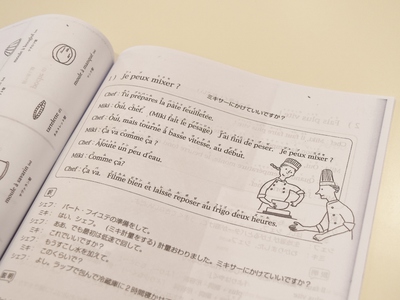 Je peux mixer ?
ミキサーにかけていいですか？
Chef : Tu prépares la pâte feuilletée.
Miki : Oui, chef. (Miki fait le pesage) J'ai fini de peser. Je peux mixer ?
Chef : Oui, mais tourne à basse vitesse, au début.
Miki : Ça va comme ça ?
Chef : Ajoute un peu d'eau.
Miki : Comme ça ?
Chef : Ça va. Filme bien et laisse reposer au frigo deux heures.
訳
シェフ： パート・フイユテの準備をして。
ミキ： はい、シェフ。(ミキ計量をする) 計量おわりました。ミキサーにかけていいですか？
シェフ： ああ、でも最初は低速で回して。
ミキ： これでいいですか？
シェフ： もうすこし水を加えて。
ミキ： このくらいで？
シェフ： よし。ラップで包んで冷蔵庫に2時間寝かせて